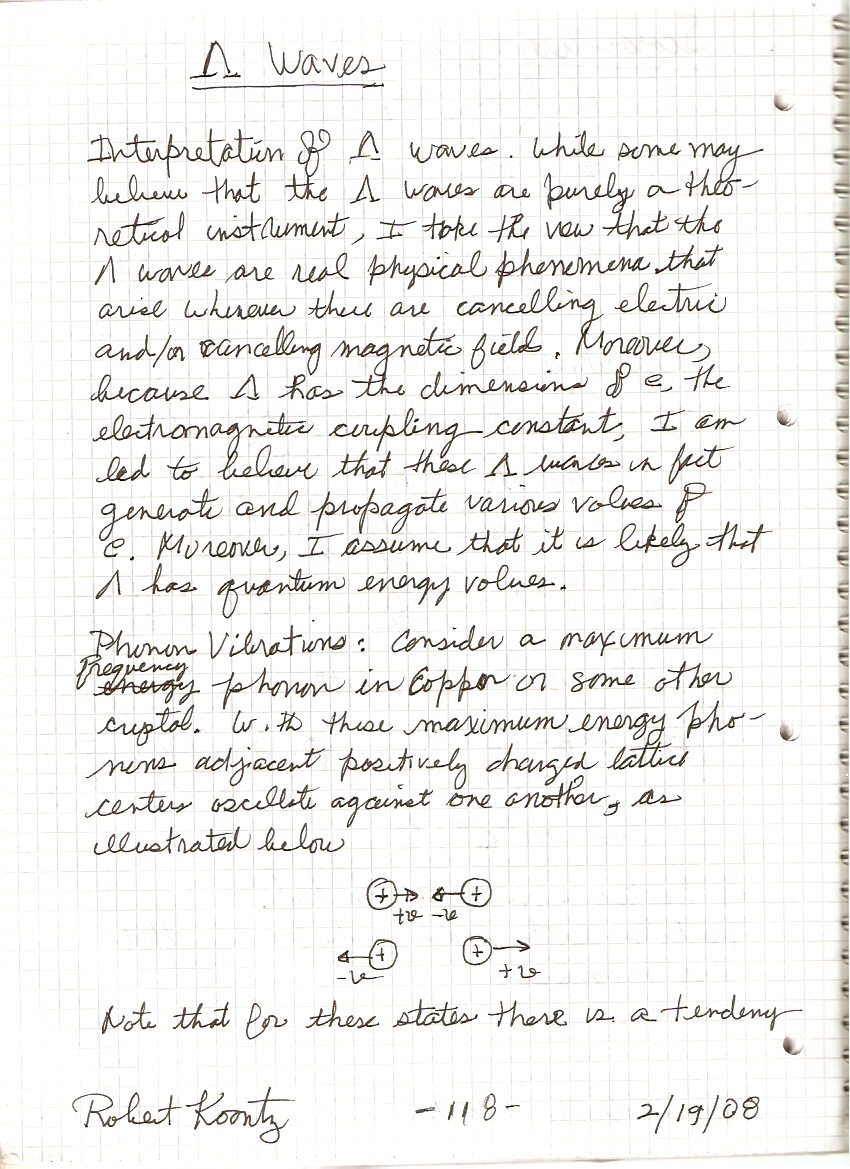 Λ Waves
Interpretation of Λ waves. While some may
believe that the Λ waves are purely a theo-
retical instrument, I take the view that the
Λ waves are real physical phenomena that
arise wherever there are cancelling electric
and/or cancelling magnetic fields. Moreover,
because Λ has the dimensions of e, the
electromagnetic coupling constant, I am
led to believe that these Λ waves in fact
generate and propagate various values of
e. Moreover, I assume that it is likely that
Λ has quantum energy values.
Phonon Vibrations: Consider a maximum
frequency
energy phonon in Copper or some other
crystal. With these maximum energy pho-
nons adjacent positively charged lattice
centers oscillate against one another, as
illustrated below
+ +
+v -v
+ +
-v +v
Note that for these states there is a tendency
Robert Koontz -118- 2/19/08